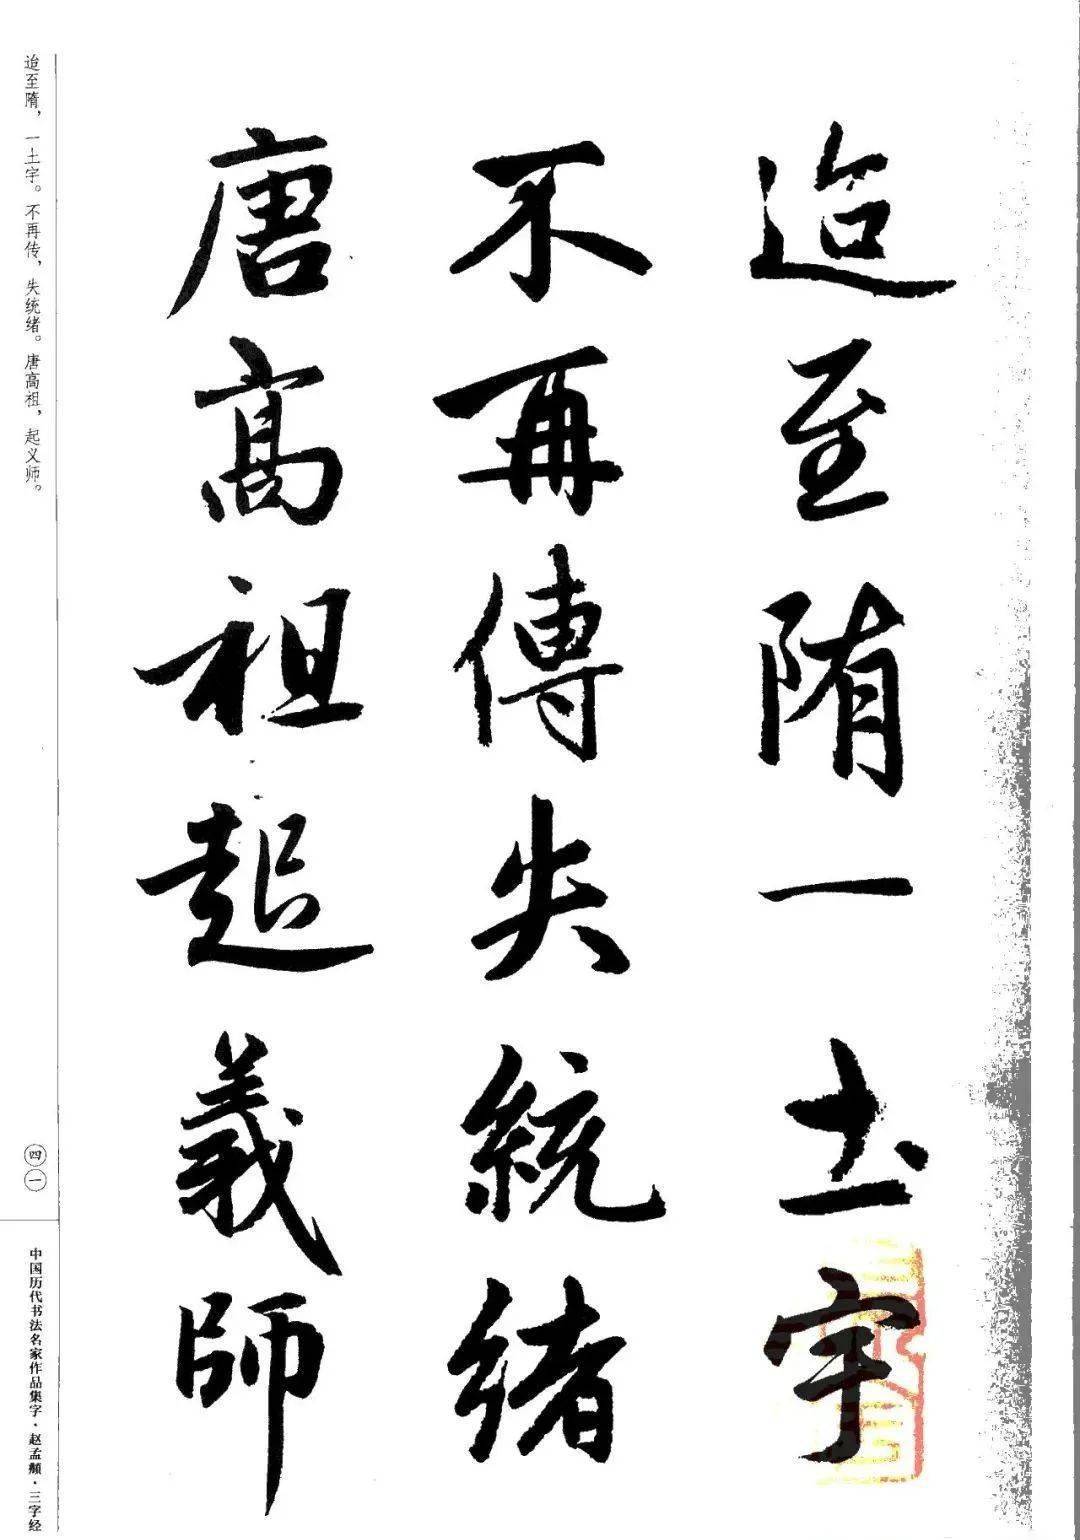 迨至隋一土宇
不再傳失統緒
唐高祖起義師
迨至隋，一土宇。不再传，失统绪。唐高祖，起义师。
四一
中国历代书法名家作品集字·赵孟頫·三字经